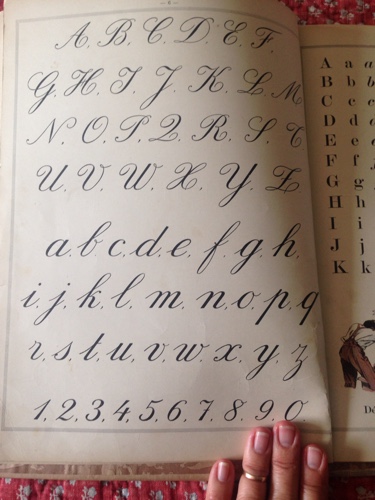 A. B. C. D. E. F.
G. H. I. J. K. L. M
N. O. P. Q. R. S. T
U. V. W. X. Y. Z
a. b. c. d. e. f. g. h.
i. j. k. l. m. n. o. p. q
r. s. t. u. v. w. x. y. z
1. 2. 3. 4. 5. 6. 7. 8. 9. 0
A a a
B b b
C c c
D d d
E e e
F f
G g
H h
I i
J j
K k